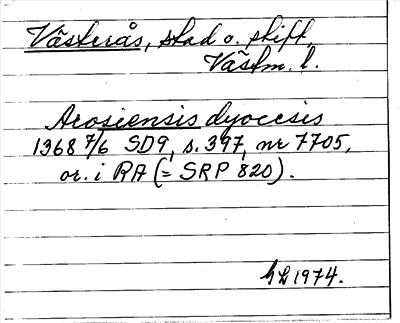 Västerås, stad o. stift,
Västm. l.
Arosiensis dyocesis
1368 7/6 SD9, s. 397, nr 7705,
or. i RA (= SRP 820).
GL 1974.